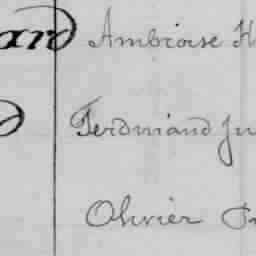 ard Ambroise H
Ferdinand Ju
Olivier